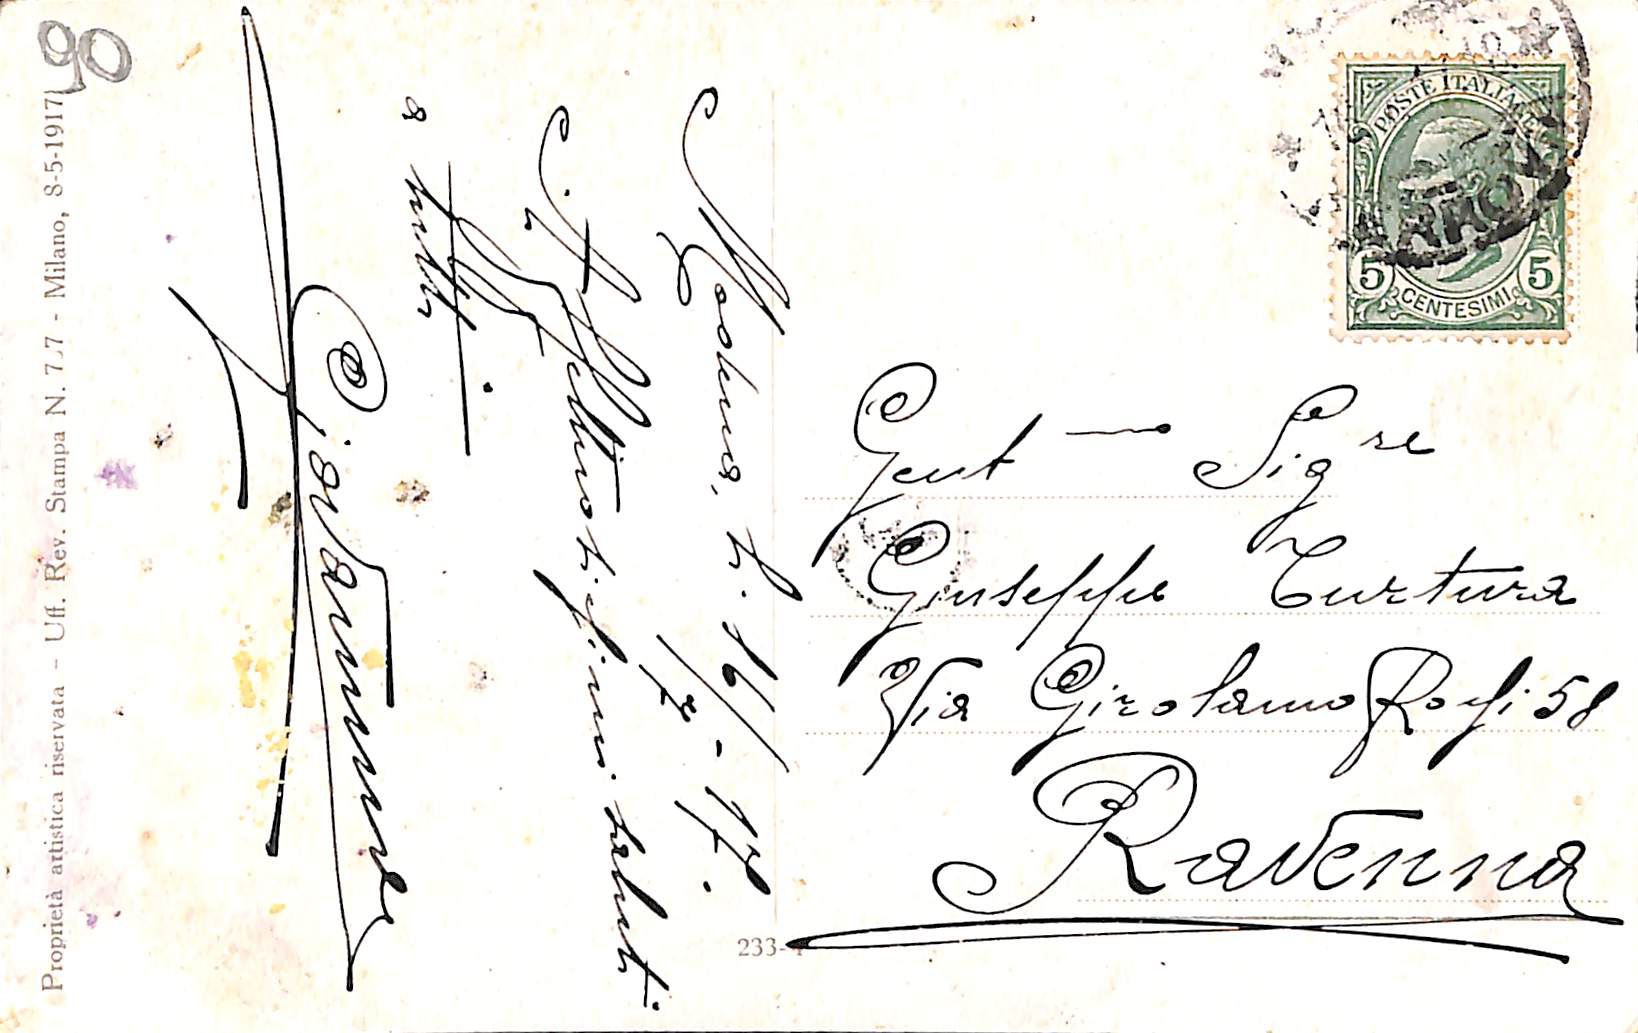 90
Proprietà artistica riservata - Uff. Rev. Stampa N. 727 - Milano, 8-5-1917
Modena, li. 16/7-17.
Affettuosissimi saluti
a tutti
Giovannino
POSTE ITALIANE
5 CENTESIMI 5
Gent — Sigre
Giuseppe Turtura
Via Girolamo Rossi 58
Ravenna
233-